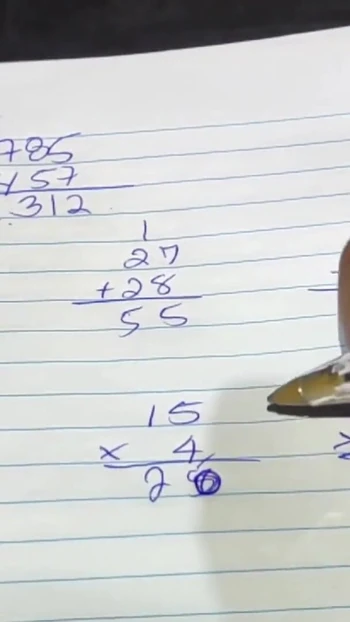 785
157
312
1
27
+28
55
15
× 4
20